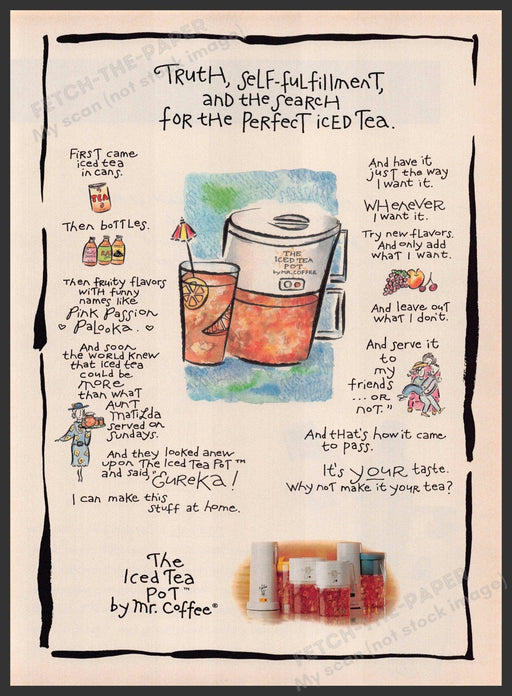 FETCH-THE-PAPER
My scan (not stock image)
Truth, Self-fulfillment,
and the search
for the perfect iced tea.
First came
iced tea
in cans.
TEA
Then bottles.
Then fruity flavors
with funny
names like
Pink Passion
Palooka.
And soon
the world knew
that iced tea
could be
more
than what
Aunt
Matilda
served on
Sundays.
And they looked anew
upon The Iced Tea Pot™
and said, "Eureka!
I can make this
stuff at home.
THE
ICED TEA
POT
by MR. COFFEE
And have it
just the way
I want it.
Whenever
I want it.
Try new flavors.
And only add
what I want.
And leave out
what I don't.
And serve it
to
my
friends
...or
not."
And that's how it came
to pass.
It's your taste.
Why not make it your tea?
The
Iced Tea
Pot™
by Mr. Coffee®
FETCH-THE-PAPER
My scan (not stock image)